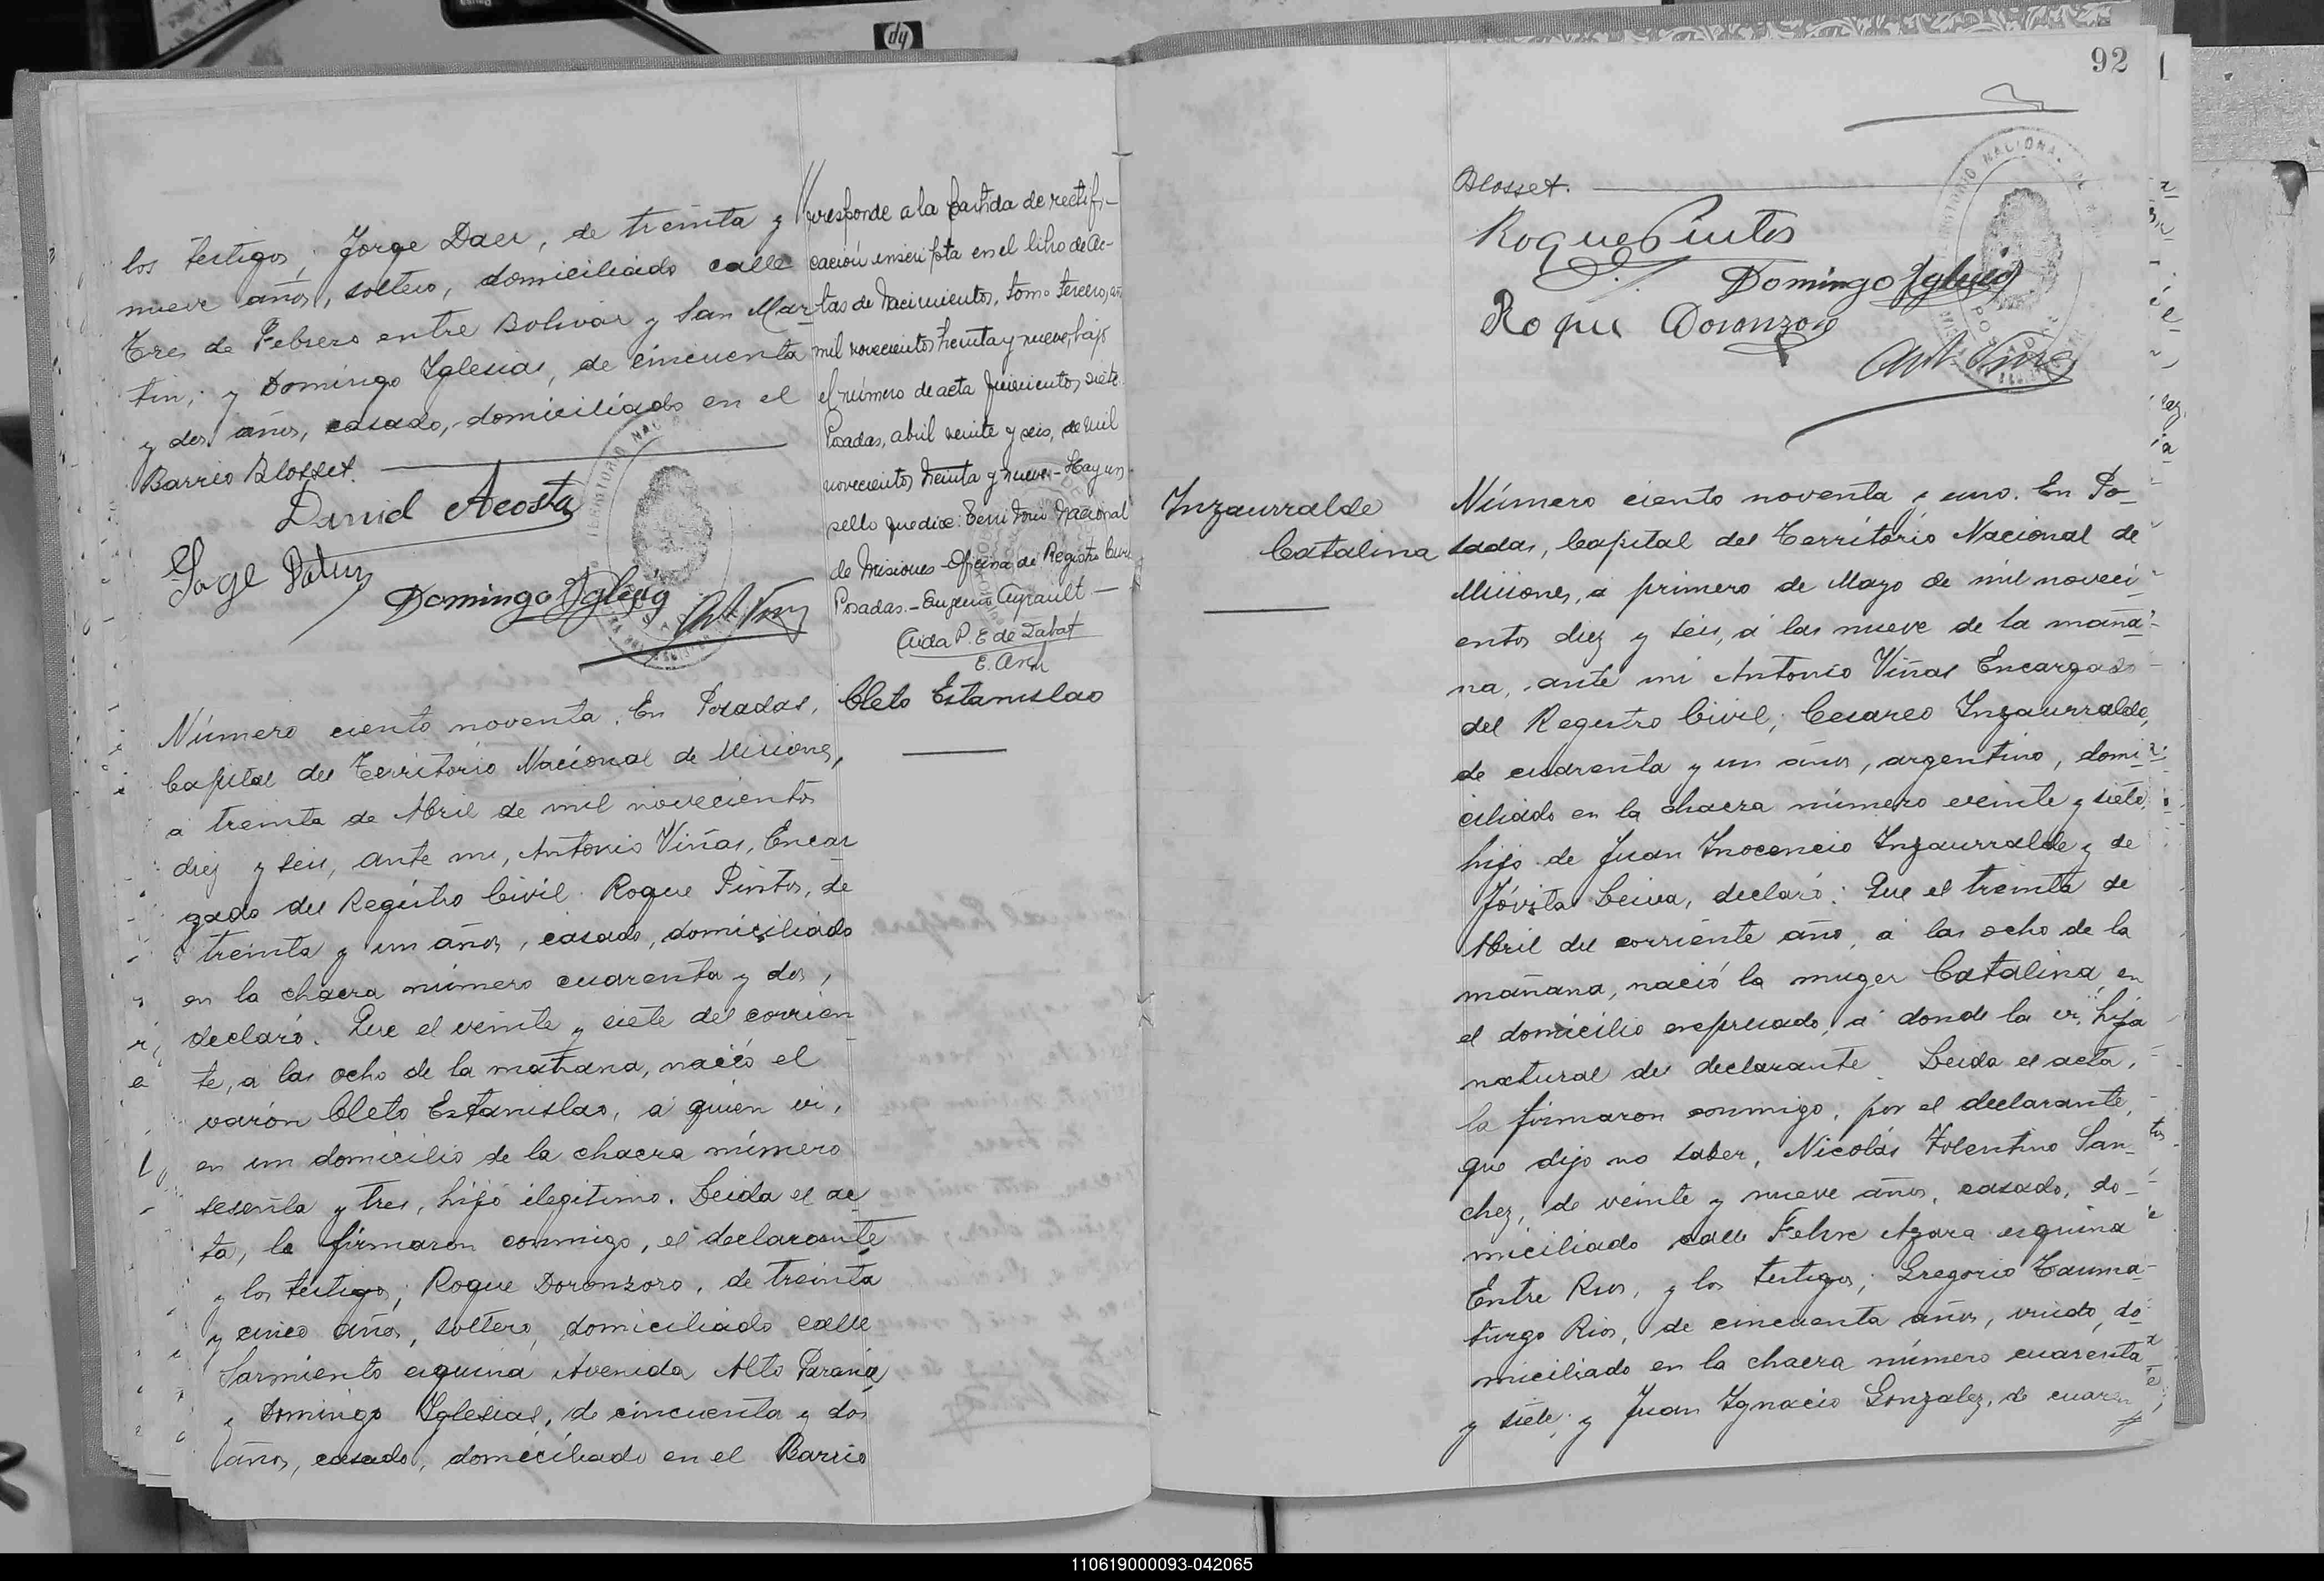 los testigos; Jorge Daer, de treinta y
nueve años, soltero, domiciliado calle
Tres de Febrero entre Bolivar y San Mar-
tin; y Domingo Iglesias, de cincuenta
y dos años, casado, domiciliado en el
Barrio Blosset.
David Acosta
Domingo Iglesias
//rresponde a la partida de rectifi-
cación inscripta en el libro de Ac-
tas de Nacimientos, tomo tercero, año
mil novecientos treinta y nueve, bajo
el número de acta quinientos siete.
Posadas, abril veinte y seis, de mil
novecientos treinta y nueve.- Hay un
sello que dice: Territorio Nacional
de Misiones - Oficina de Registro Civil
Posadas.- Eugenio Ayrault -
Aida P. E. de Zabat
Número ciento noventa. En Posadas,
Capital del Territorio Nacional de Misiones,
a treinta de Abril de mil novecientos
diez y seis, ante mi, Antonio Viñas, Encar
gado del Registro Civil. Roque Pintos, de
treinta y un años, casado, domiciliado
en la chacra número cuarenta y dos,
declaró. Que el veinte y siete del corrien
te, a las ocho de la mañana, nació el
varón Cleto Estanislao, a quien vi,
en un domicilio de la chacra número
sesenta y tres, hijo ilegitimo. Leida el ac
ta, la firmaron conmigo, el declarante
y los testigos; Roque Doronzoro, de treinta
y cinco años, soltero, domiciliado calle
Sarmiento esquina Avenida Alto Paraná,
y Domingo Iglesias, de cincuenta y dos
años, casado, domiciliado en el Barrio
Cleto Estanislao
92
Blosset.
Roque Pintos
Domingo Iglesias
Roque Doronzoro
Inzaurralde
Catalina
Número ciento noventa y uno. En Po-
sadas, Capital del Territorio Nacional de
Misiones, a primero de Mayo de mil noveci
entos diez y seis, a las nueve de la maña-
na, ante mi Antonio Viñas Encargado
del Registro Civil; Cesareo Inzaurralde,
de cuarenta y un años, argentino, domi-
ciliado en la chacra número veinte y siete,
hijo de Juan Inocencio Inzaurralde y de
Jóvita Leiva, declaró: Que el treinta de
Abril del corriente año, a las ocho de la
mañana, nació la muger Catalina, en
el domicilio expresado, a donde la vi, hija
natural del declarante. Leida el acta,
la firmaron conmigo, por el declarante,
que dijo no saber, Nicolás Tolentino San-
chez, de veinte y nueve años, casado, do-
miciliado calle Felix Azara esquina
Entre Rios, y los testigos; Gregorio Tauma-
turgo Rios, de cincuenta años, viudo, do-
miciliado en la chacra número cuarenta
y siete; y Juan Ignacio Gonzalez, de cuaren
110619000093-042065